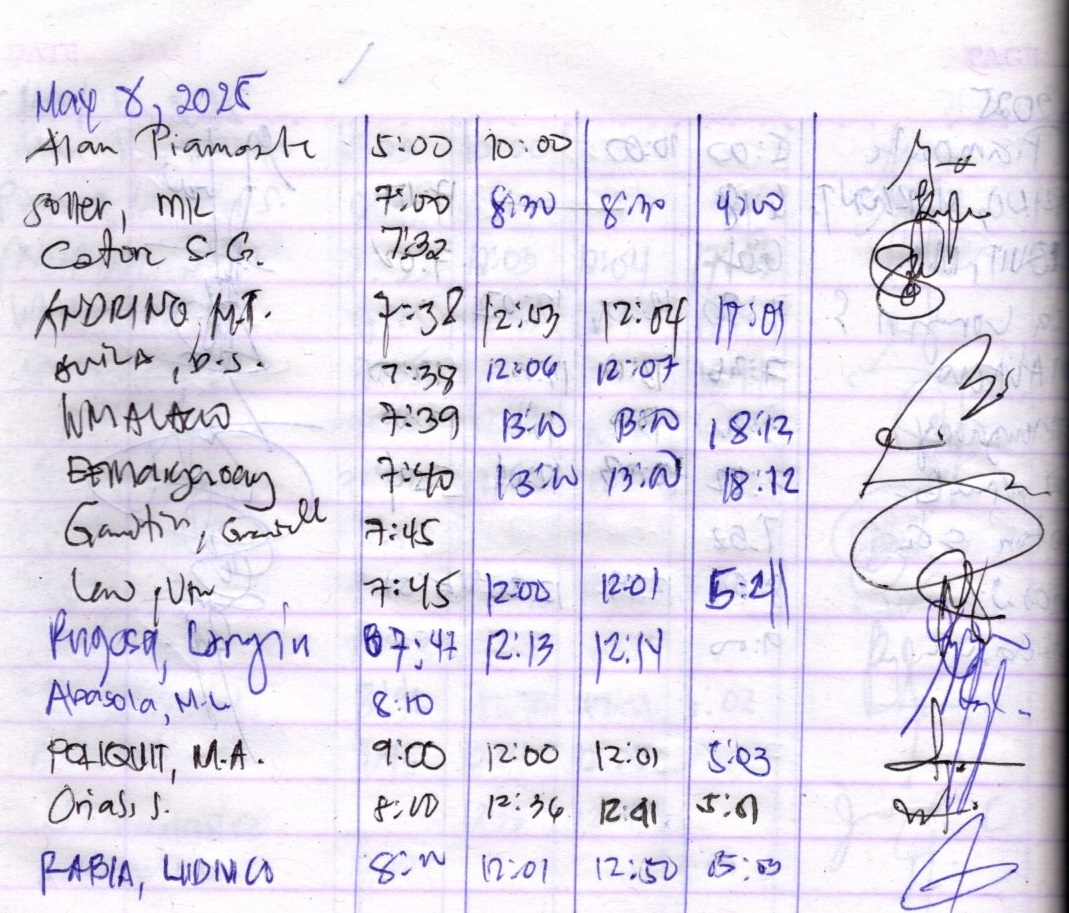 May 8, 2025
Alan Piamonte 5:00 10:00
Soller, ML 7:00 8:30 8:30 4:00
Caton S.G. 7:32
ANDRINO, M.T. 7:38 12:03 12:04 17:01
AVILA, D.S. 7:38 12:06 12:07
7:39 13:10 13:10 18:12
7:40 13:10 13:10 18:12
7:45
7:45 12:00 12:01 5:21
Rugosa, Longin 07:47 12:13 12:14
Abasola, M.L 8:10
POLIQUIT, M.A. 9:00 12:00 12:01 5:03
Orias, S. 8:00 12:36 12:41 5:01
RABIA, LUDIVICO 8:00 12:01 12:50 05:00